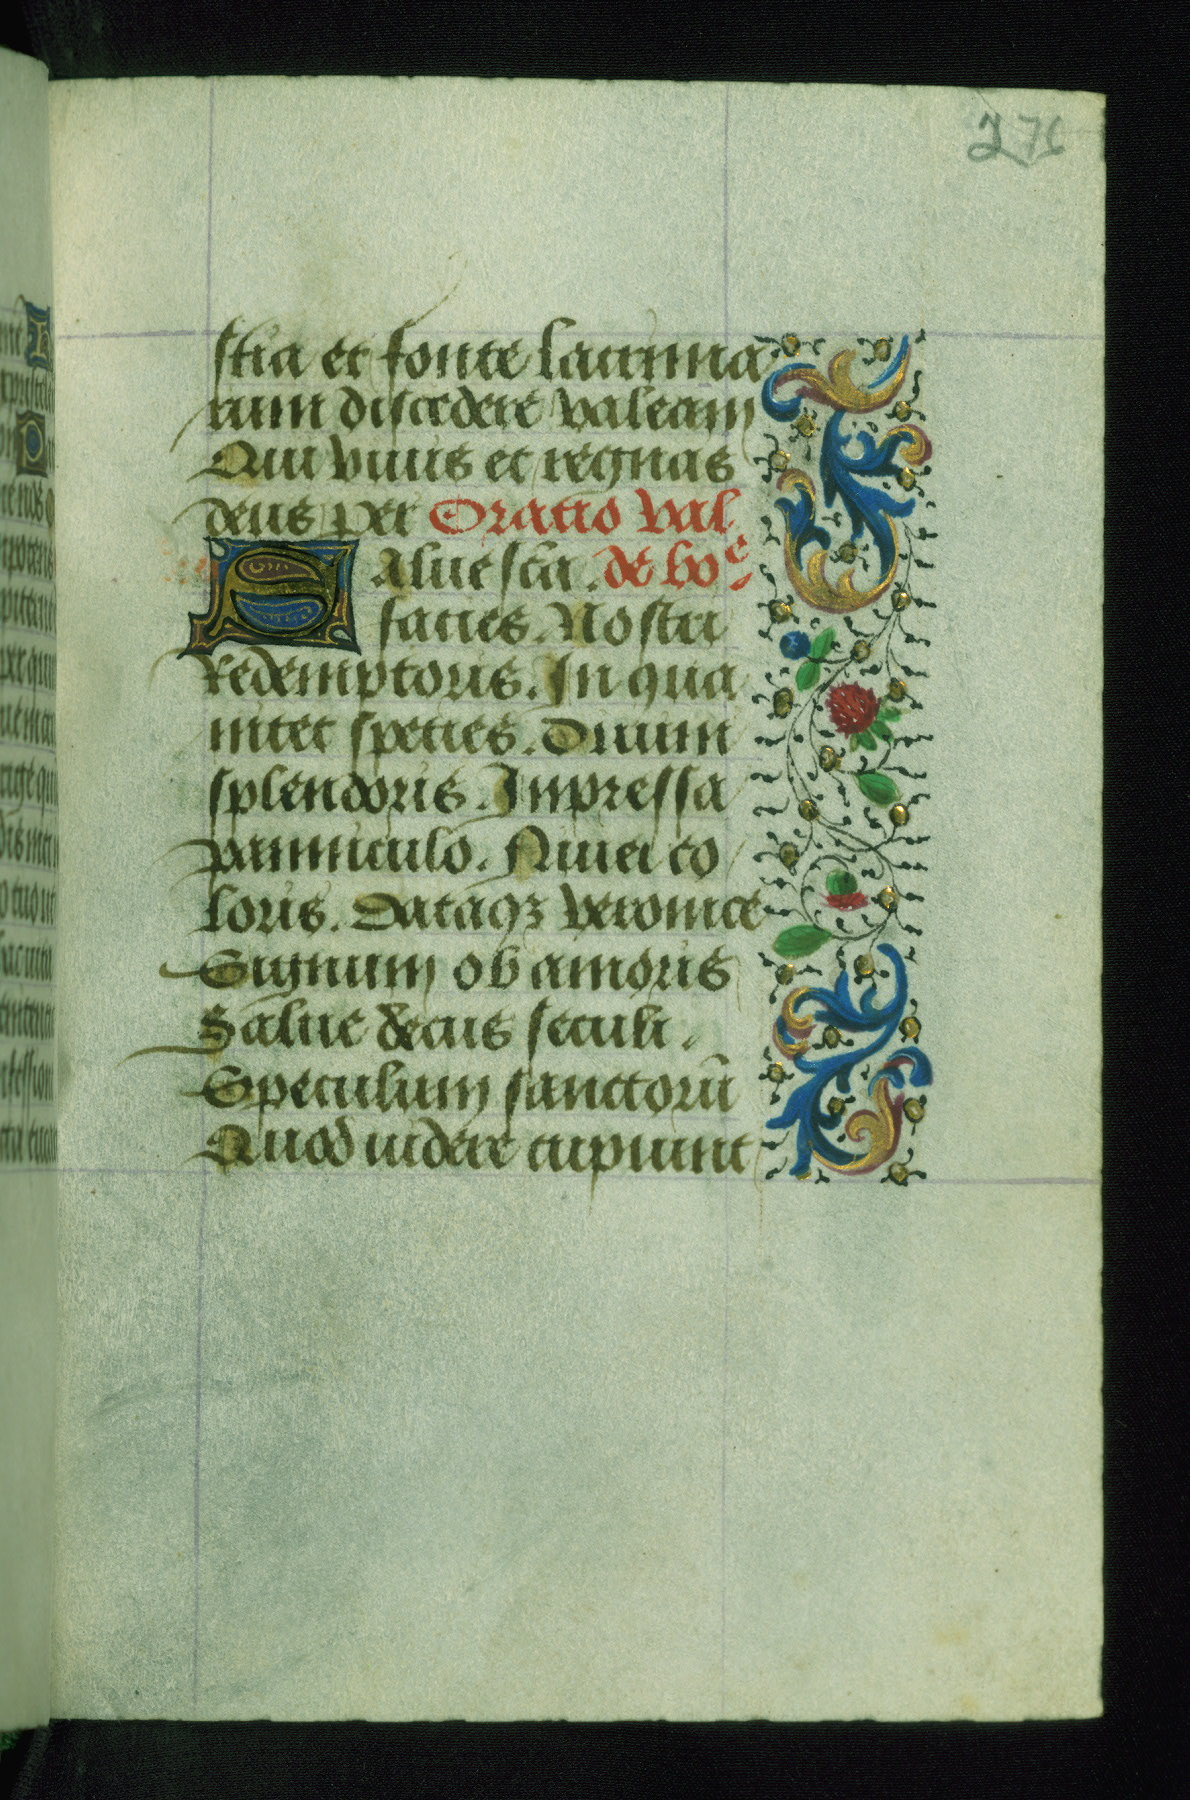 276
stia et fonte lacrima
rum discedere valeam
Qui viuis et regnas
deus per Oratio val
Salue sc̄a. de boᵉ
facies. Nostri
Redemptoris. In qua
nitet species. Diuini
splendoris. Inpressa
panniculo. Niuei co
loris. Dataqꝫ veronice
Signum ob amoris
Salue decus seculi.
Speculum sanctorū
Quod uidere cupiunt